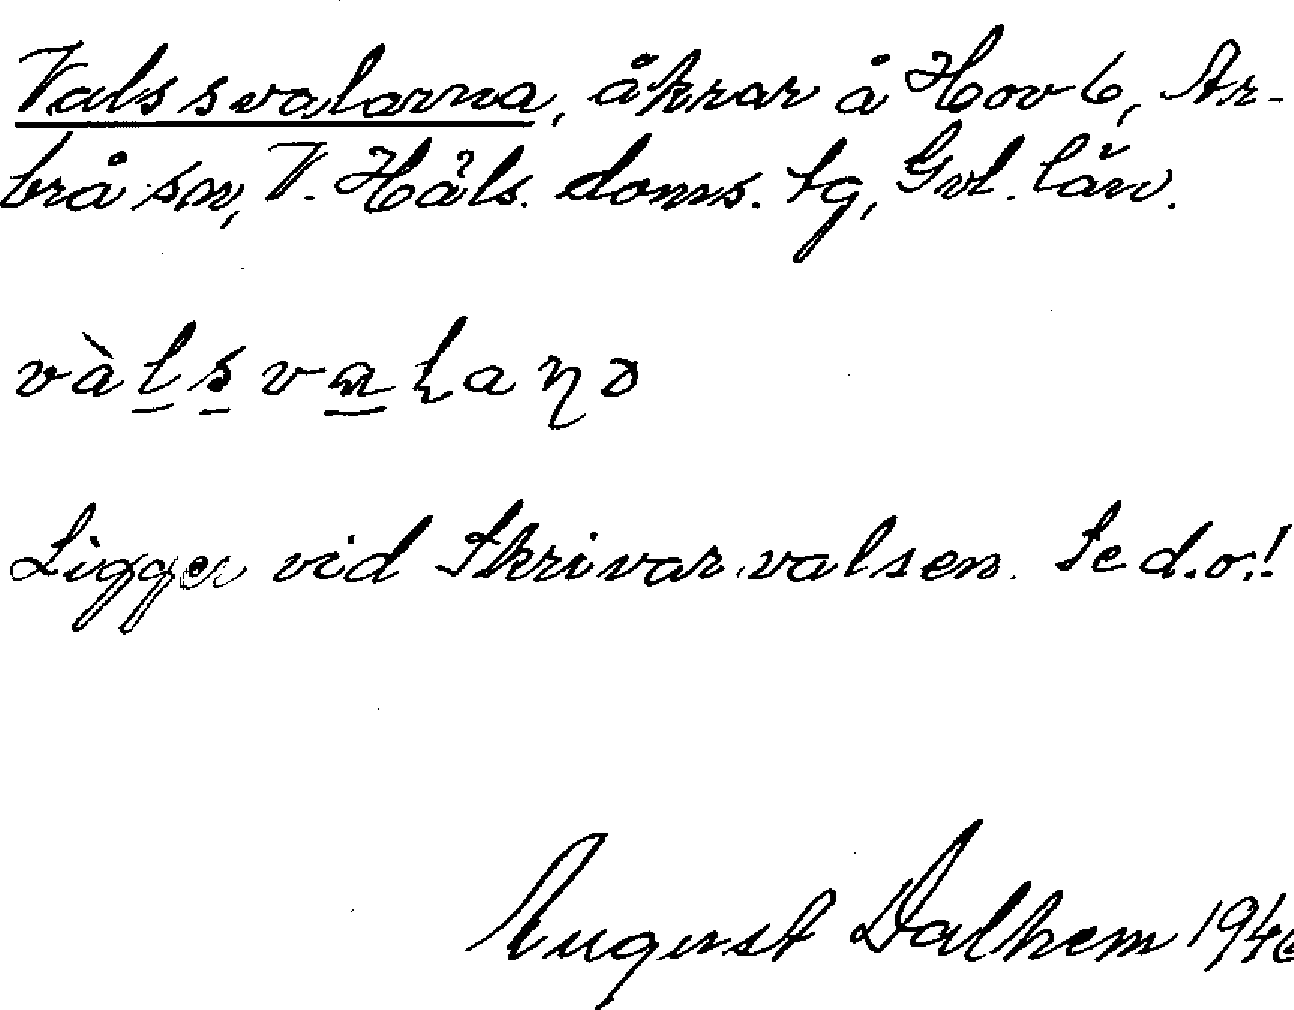 Valssvalarna, åkrar å Hov 6, Ar-
brå sn, V. Häls. doms. sg, Gvl. län.
vàlsvalaɳɔ
Ligger vid Skrivarvalsen. Se d.o.!
August Dalhem 1946